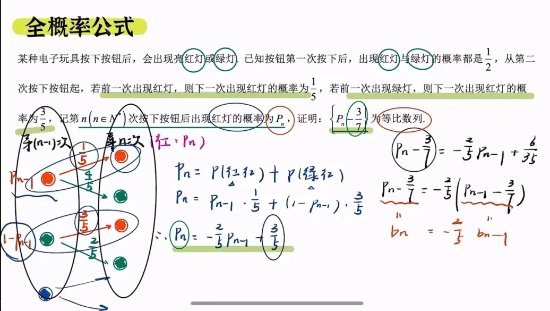 全概率公式
某种电子玩具按下按钮后,会出现亮红灯或绿灯.已知按钮第一次按下后,出现红灯与绿灯的概率都是1/2,从第二
次按下按钮起,若前一次出现红灯,则下一次出现红灯的概率为1/5,若前一次出现绿灯,则下一次出现红灯的概
率为3/5,记第n(n∈N*)次按下按钮后出现红灯的概率为Pₙ,证明:{Pₙ-3/7}为等比数列.
第(n-1)次
第n次
(红:Pₙ)
Pₙ₋₁
1/5
4/5
1-Pₙ₋₁
3/5
2/5
Pₙ = P(红红) + P(绿红)
Pₙ = Pₙ₋₁ · 1/5 + (1-Pₙ₋₁) · 3/5
∴ Pₙ = -2/5 Pₙ₋₁ + 3/5
Pₙ - 3/7 = -2/5 Pₙ₋₁ + 6/35
Pₙ - 3/7 = -2/5 (Pₙ₋₁ - 3/7)
bₙ = -2/5 bₙ₋₁